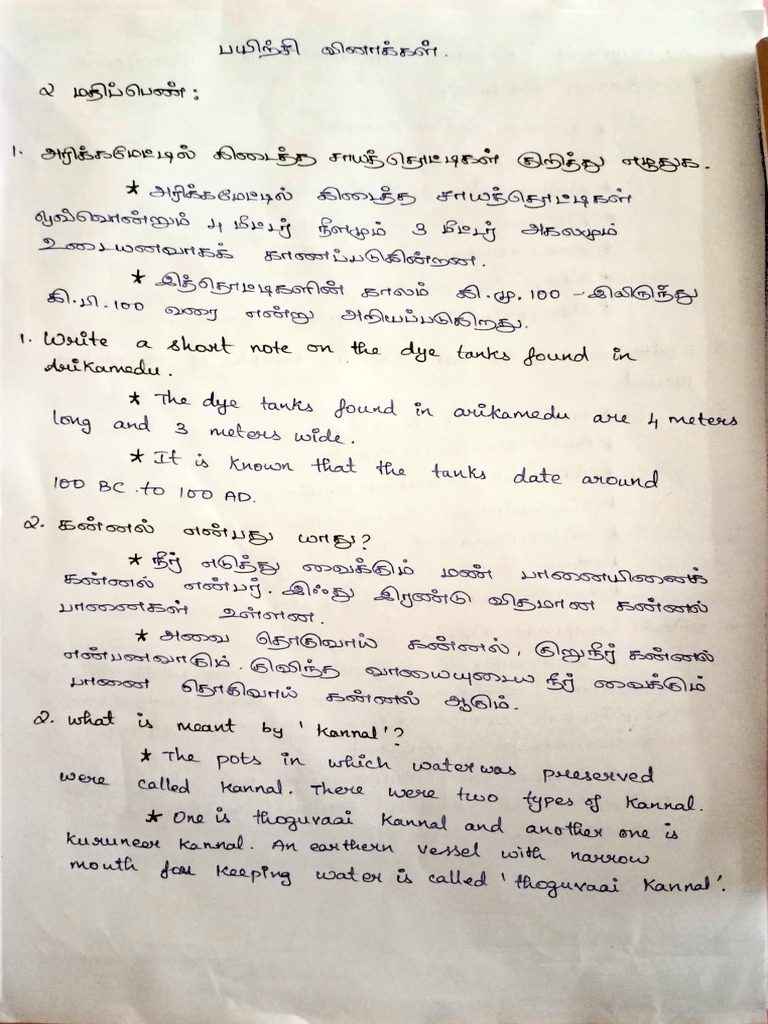 பயிற்சி வினாக்கள்.
2 மதிப்பெண்:
1. அரிக்கமேட்டில் கிடைத்த சாயத்தொட்டிகள் குறித்து எழுதுக.
* அரிக்கமேட்டில் கிடைத்த சாயத்தொட்டிகள்
ஒவ்வொன்றும் 4 மீட்டர் நீளமும் 3 மீட்டர் அகலமும்
உடையனவாகக் காணப்படுகின்றன.
* இத்தொட்டிகளின் காலம் கி.மு. 100 - இலிருந்து
கி.பி. 100 வரை என்று அறியப்படுகிறது.
1. Write a short note on the dye tanks found in
Arikamedu.
* The dye tanks found in arikamedu are 4 meters
long and 3 meters wide.
* It is known that the tanks date around
100 BC to 100 AD.
2. கன்னல் என்பது யாது?
* நீர் எடுத்து வைக்கும் மண் பானையினைக்
கன்னல் என்பர். இஃது இரண்டு விதமான கன்னல்
பானைகள் உள்ளன.
* அவை தொகுவாய் கன்னல், குறுநீர் கன்னல்
என்பனவாகும். குவிந்த வாயையுடைய நீர் வைக்கும்
பானை தொகுவாய் கன்னல் ஆகும்.
2. What is meant by 'Kannal'?
* The pots in which water was preserved
were called Kannal. There were two types of Kannal.
* One is thoguvaai Kannal and another one is
Kuruneer Kannal. An earthern vessel with narrow
mouth for keeping water is called 'thoguvaai Kannal'.